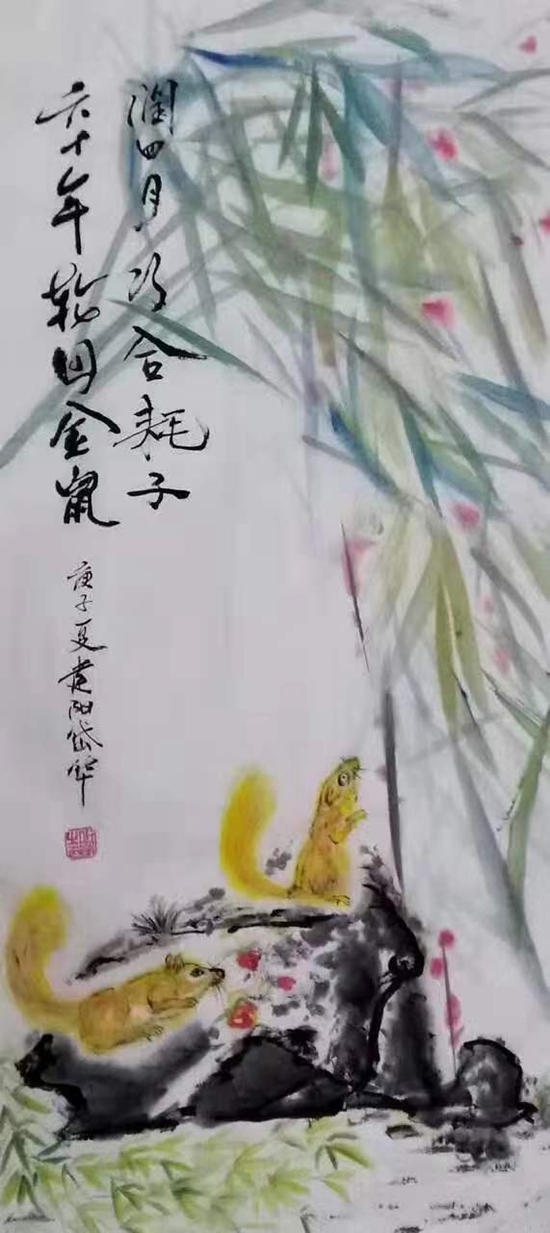 润四月巧合耗子
六十年轮回金鼠
庚子夏贵阳岱华